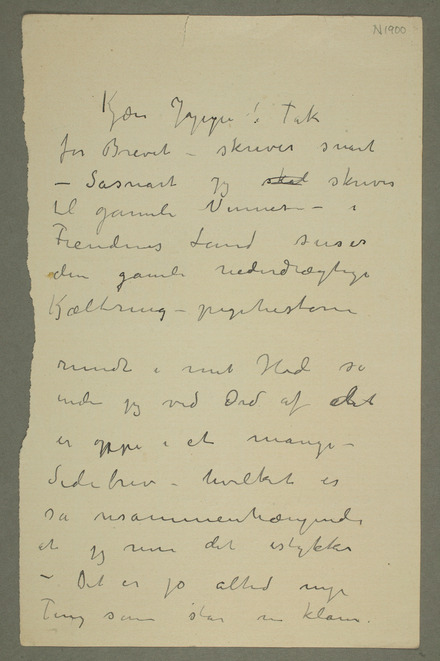 N 1900
Kjære Jappe! Tak
for Brevet – skriver snart
– Sasnart jeg skal skriver
til gamle Venner – i
Fiendnes Land suser
den gamle nederdrægtige
Kjæltring – pigehistorie
rundt i mit Hod so
inden jeg ved Ord af det
er oppe i et mange –
Sidebrev – hvilket er
så usammenhængende
at jeg det istykker
– Det er jo altid nye
Ting som står